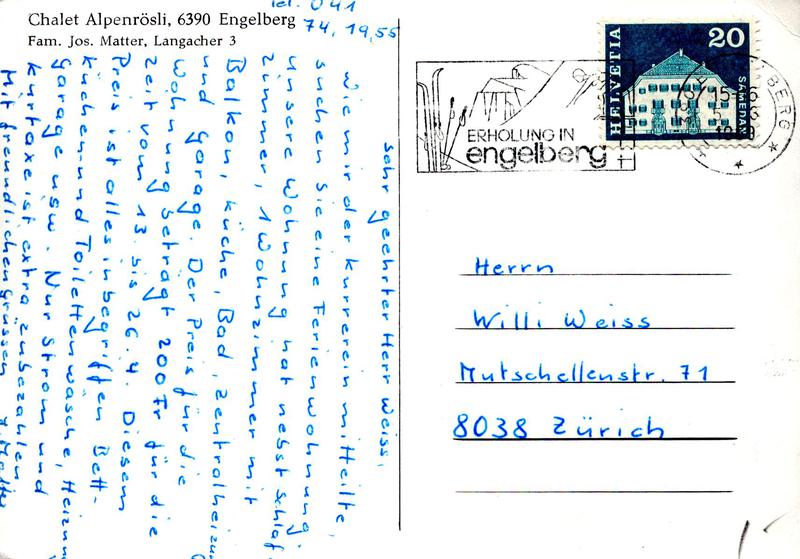 Chalet Alpenrösli, 6390 Engelberg
Tel. 041
74,19,55
Fam. Jos. Matter, Langacher 3
Sehr geehrter Herr Weiss,
Wie mir der Kurrerein mitteilte,
suchen Sie eine Ferienwohnung.
unsere Wohnung hat nebst Schlaf-
zimmer, 1 Wohnzimmer mit
Balkon, Küche, Bad, Zentralheizu
und Garage. Der Preis für die
Wohnung beträgt 200 Fr für die
Zeit vom 13. bis 26.4. Diesem
Preis ist alles inbegriffen Bett-
Küchen und Toilettenwäsche, Heizun
Garage usw. Nur Strom und
Kurtaxe ist extra zu bezahlen
Mit freundlichen Grüssen
HELVETIA
20
SAMEDAN
ERHOLUNG IN
engelberg
Herrn
Willi Weiss
Mutschellenstr. 71
8038 Zürich